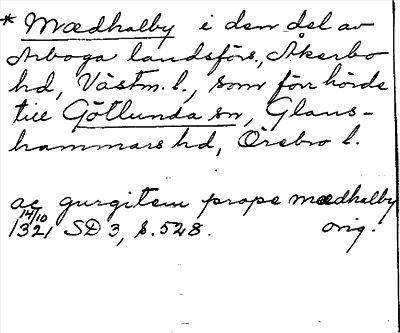 * Mædhalby i den del av
Arboga landsförs., Åkerbo
hd, Västm. l., som förr hörde
till Götlunda sn, Glans-
hammars hd, Örebro l.
ac gurgitem prope mædhalby
14/10
1321 SD 3, s. 528. orig.